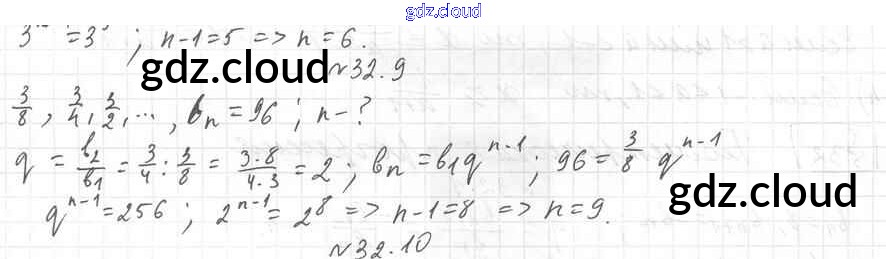 gdz.cloud
3ⁿ⁻¹ = 3⁵ ; n-1=5 => n=6.
gdz.cloud
№32.9
3/8, 3/4, 3/2, ..., bₙ = 96 ; n-?
q = b₂/b₁ = 3/4 : 3/8 = 3·8/4·3 = 2 ; bₙ = b₁qⁿ⁻¹ ; 96 = 3/8 qⁿ⁻¹
qⁿ⁻¹ = 256 ; 2ⁿ⁻¹ = 2⁸ => n-1=8 => n=9.
gdz.cloud
№32.10